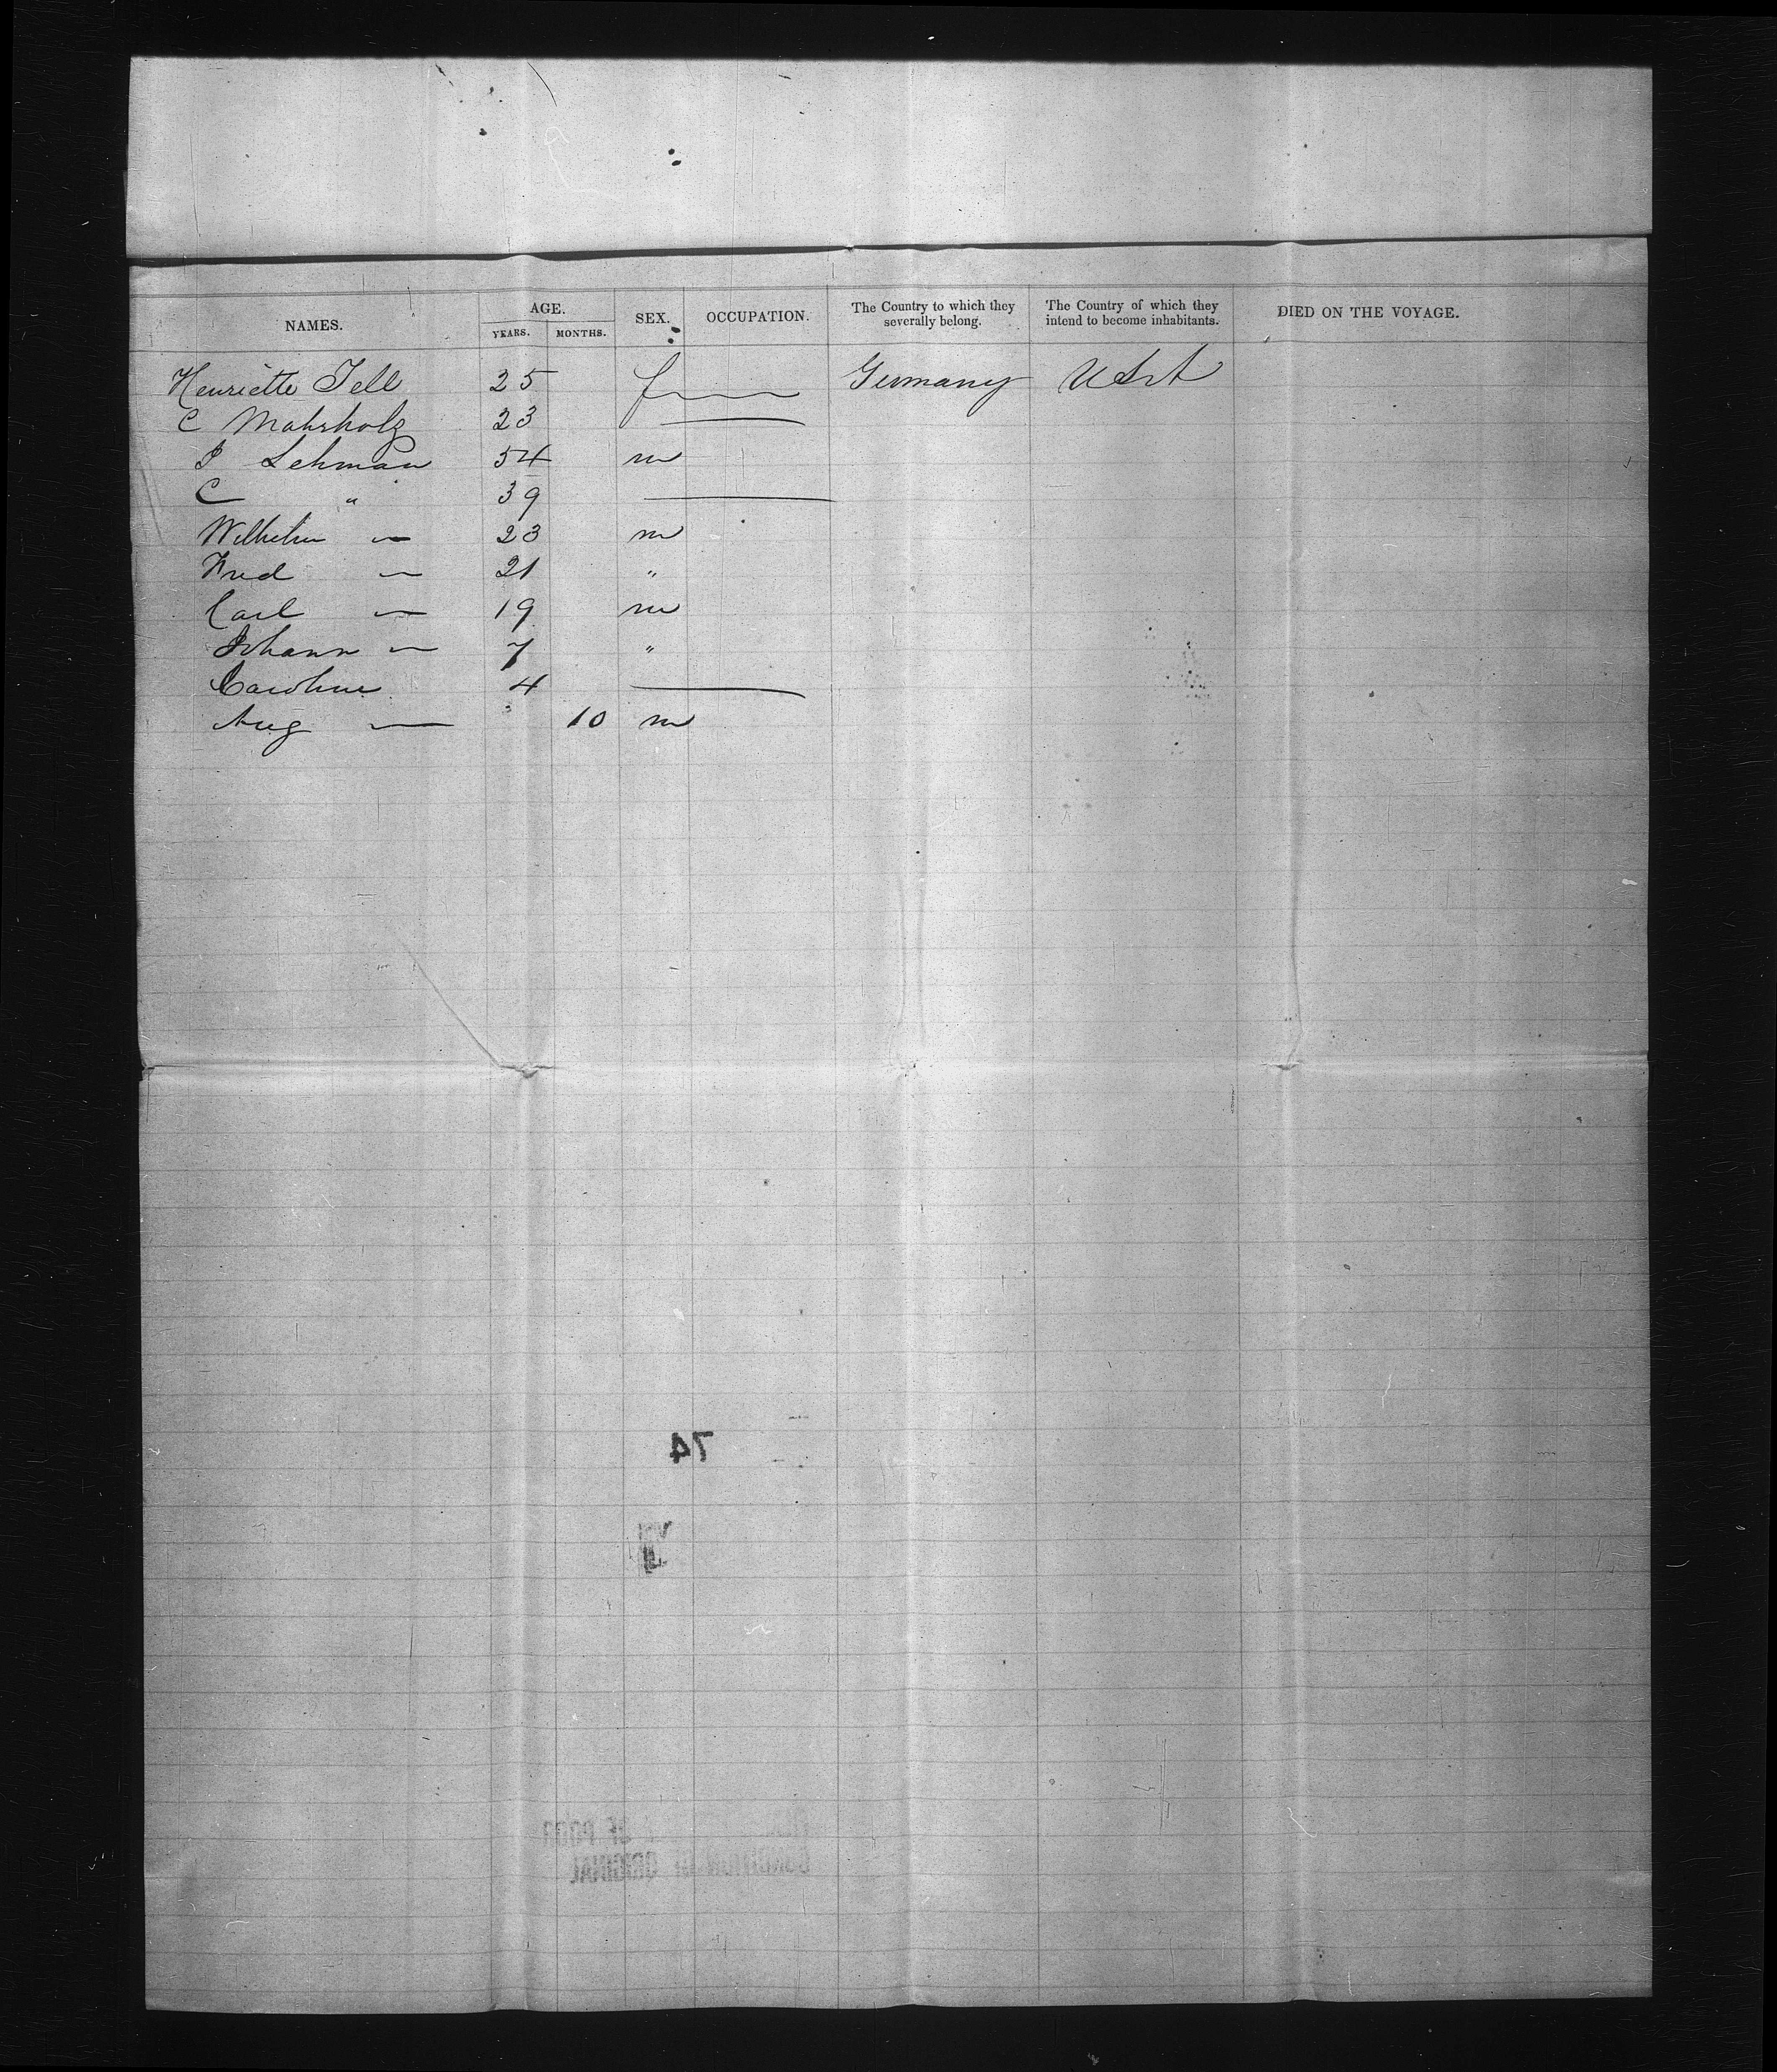 NAMES. AGE. YEARS. MONTHS. SEX. OCCUPATION. The Country to which they severally belong. The Country of which they intend to become inhabitants. DIED ON THE VOYAGE.
Henriette Tell 25 f Germany USA
C Mahrholz 23
J Lehman 54 m
C " 39
Wilhelm — 23 m
Fred — 21 "
Carl — 19 m
Johann — 7 "
Caroline 4
Aug — 10 m
74
CONDITION OF ORIGINAL